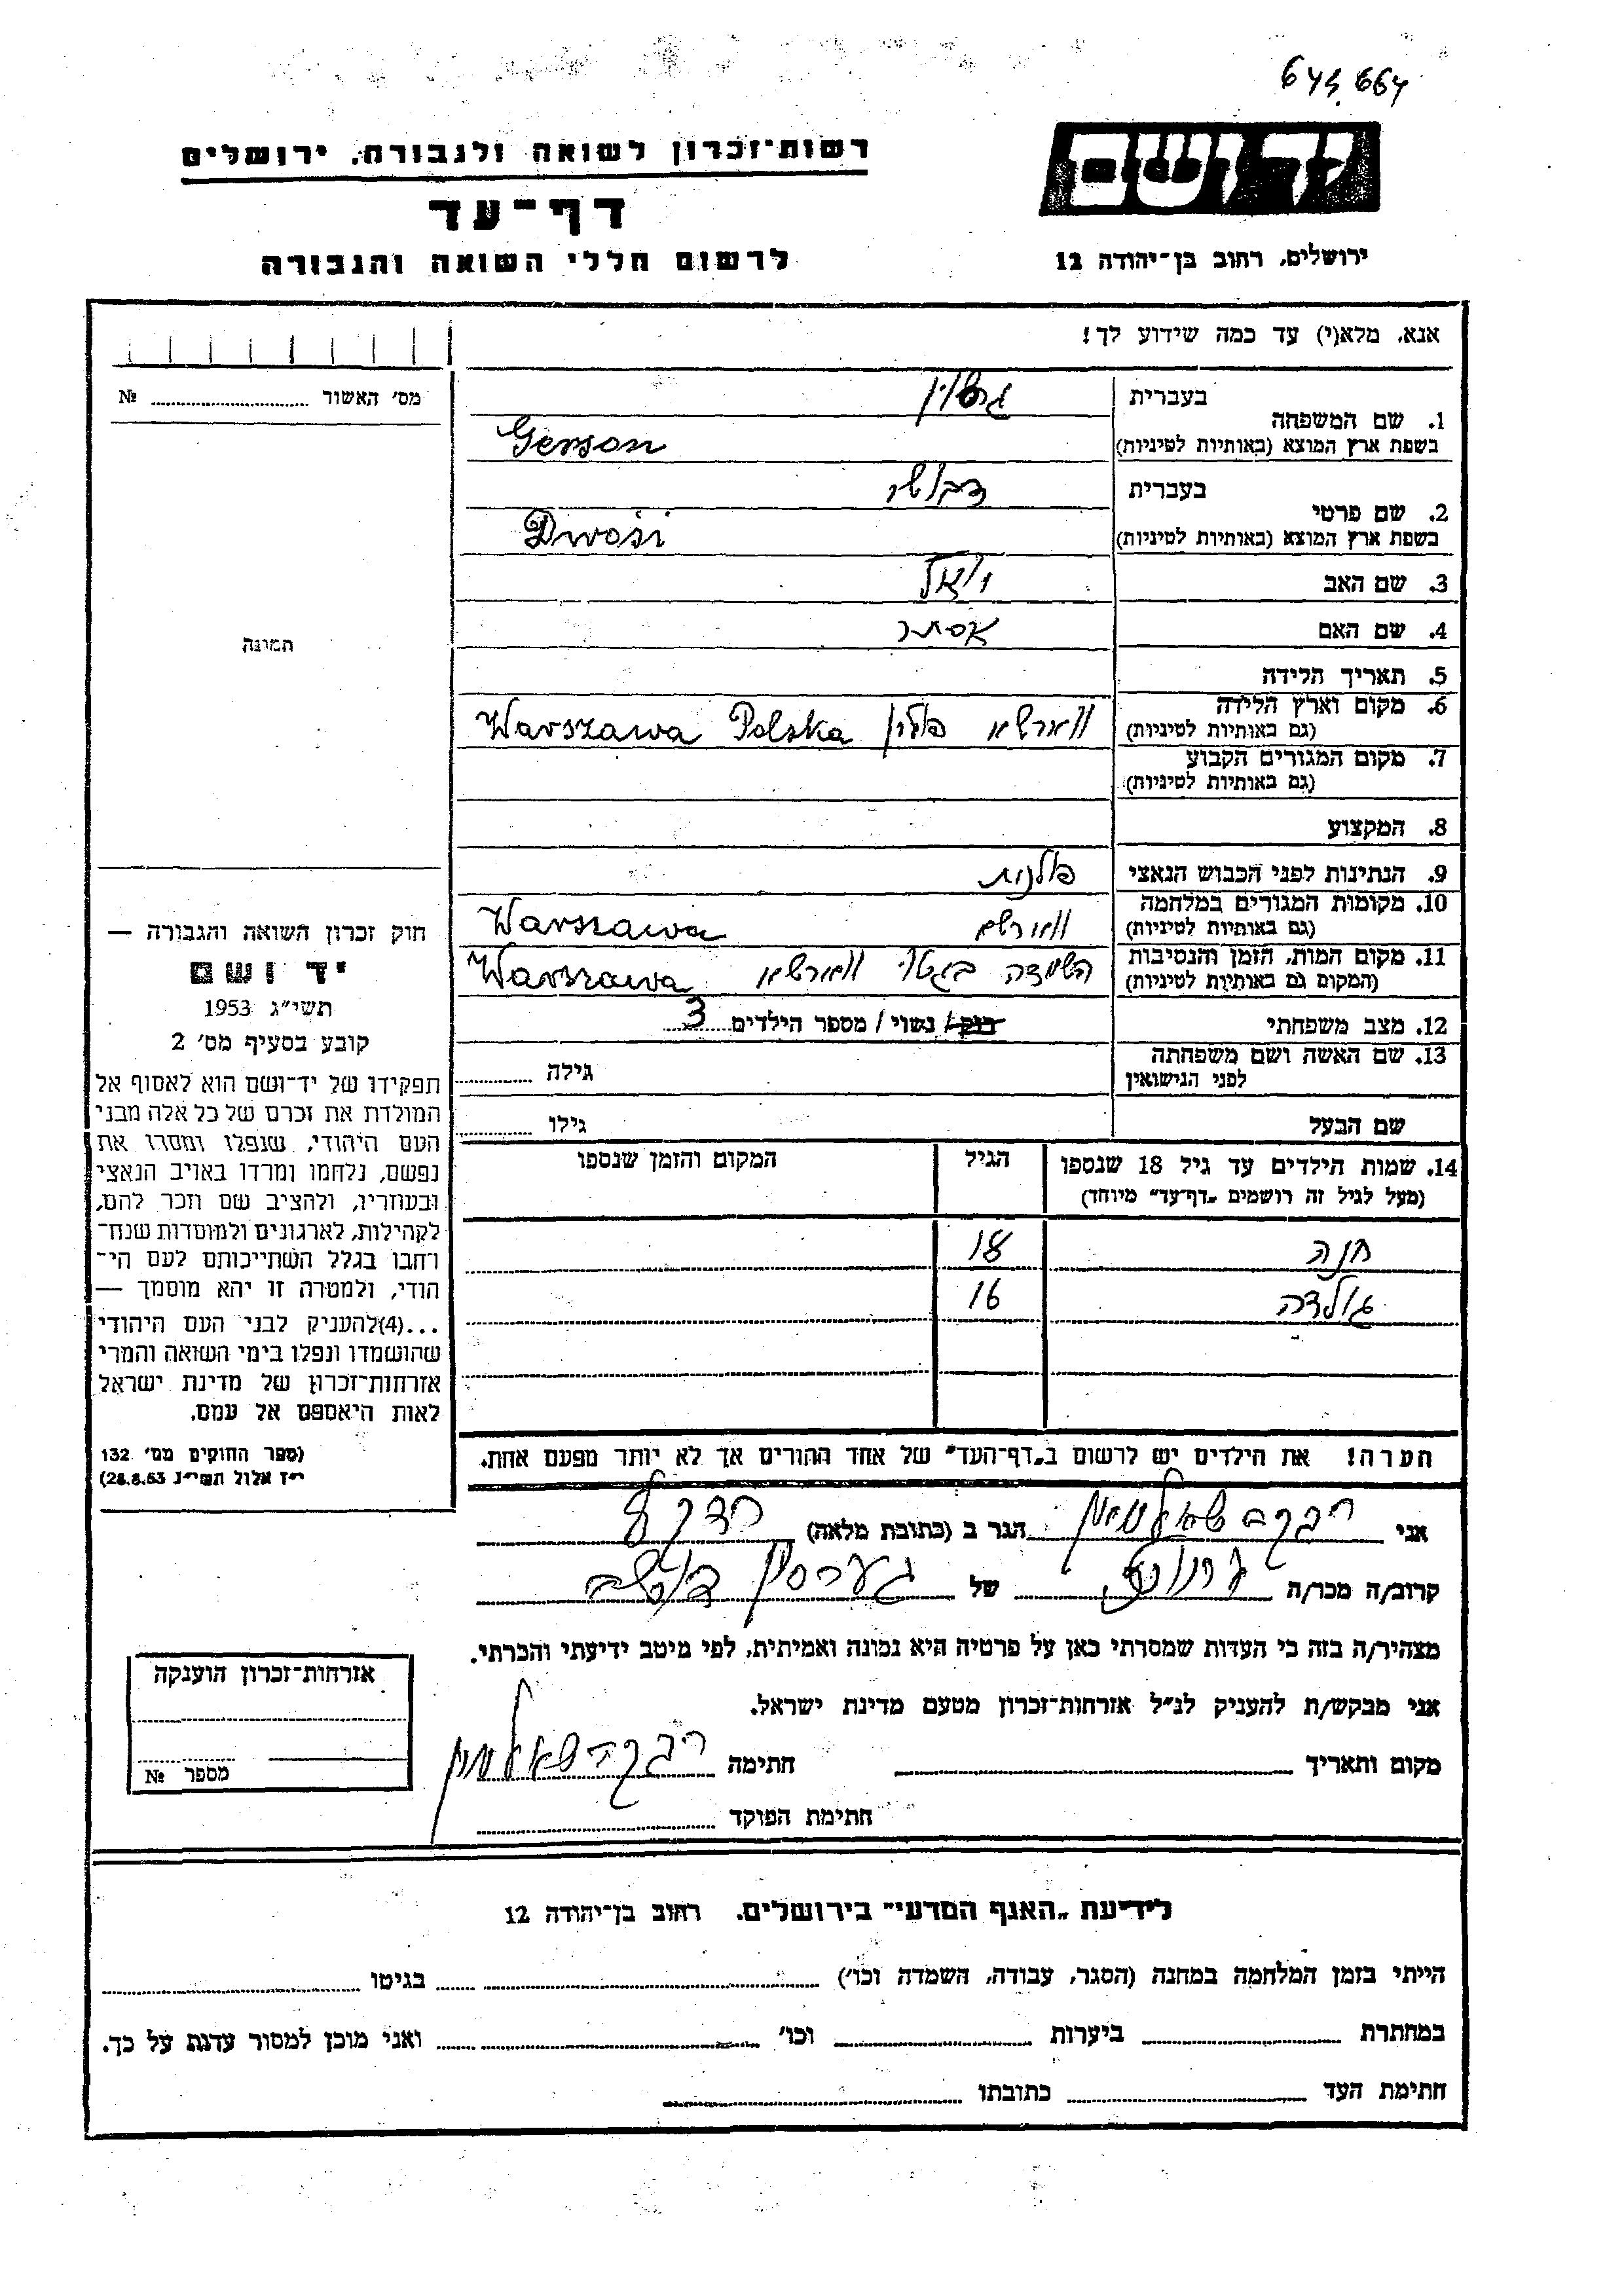 רשות־זכרון לשואה ולגבורה, ירושלים
דף־עד
לרשום חללי השואה והגבורה
יד ושם
ירושלים, רחוב בן־יהודה 12
אנא, מלא(י) עד כמה שידוע לך!
מס' האשור № 
1. שם המשפחה
בעברית
בשפת ארץ המוצא (באותיות לטיניות)
Gerson
2. שם פרטי
בעברית
בשפת ארץ המוצא (באותיות לטיניות)
Dwosi
3. שם האב
4. שם האם אסתר
5. תאריך הלידה
6. מקום וארץ הלידה
(גם באותיות לטיניות)
ווארשא פולין Warszawa Polska
7. מקום המגורים הקבוע
(גם באותיות לטיניות)
8. המקצוע
9. הנתינות לפני הכבוש הנאצי פולנית
10. מקומות המגורים במלחמה
(גם באותיות לטיניות)
Warszawa
11. מקום המות, הזמן והנסיבות
(המקום גם באותיות לטיניות)
השמדה בגטו ווארשא Warszawa
12. מצב משפחתי רווק / נשוי / מספר הילדים 3
13. שם האשה ושם משפחתה
לפני הנישואין
גילה
שם הבעל גילו
14. שמות הילדים עד גיל 18 שנספו
(מעל לגיל זה רושמים „דף־עד” מיוחד)
הגיל
המקום והזמן שנספו
חנה 18
גולדה 16
הערה! את הילדים יש לרשום ב„דף־העד” של אחד ההורים אך לא יותר מפעם אחת.
תמונה
חוק זכרון השואה והגבורה —
יד ושם
תשי"ג 1953
קובע בסעיף מס' 2
תפקידו של יד־ושם הוא לאסוף אל
המולדת את זכרם של כל אלה מבני
העם היהודי, שנפלו ומסרו את
נפשם, נלחמו ומרדו באויב הנאצי
ובעוזריו, ולהציב שם וזכר להם,
לקהילות, לארגונים ולמוסדות שנח־
רחבו בגלל השתייכותם לעם הי־
הודי, ולמטרה זו יהא מוסמך —
...(4)להעניק לבני העם היהודי
שהושמדו ונפלו בימי השואה והמרי
אזרחות־זכרון של מדינת ישראל
לאות היאספם אל עמם.
(ספר החוקים מס' 132
י"ז אלול תשי"ג 28.8.53)
אני רבקה הגר ב (כתובת מלאה)
קרוב/ה מכר/ה של
מצהיר/ה בזה כי העדות שמסרתי כאן על פרטיה היא נכונה ואמיתית, לפי מיטב ידיעתי והכרתי.
אני מבקש/ת להעניק לנ"ל אזרחות־זכרון מטעם מדינת ישראל.
מקום ותאריך חתימה רבקה
חתימת הפוקד
אזרחות־זכרון הוענקה
מספר №
לידיעת „האגף המדעי” בירושלים, רחוב בן־יהודה 12
הייתי בזמן המלחמה במחנה (הסגר, עבודה, השמדה וכו') בגיטו
במחתרת ביערות וכו' ואני מוכן למסור עדות על כך.
חתימת העד כתובתו